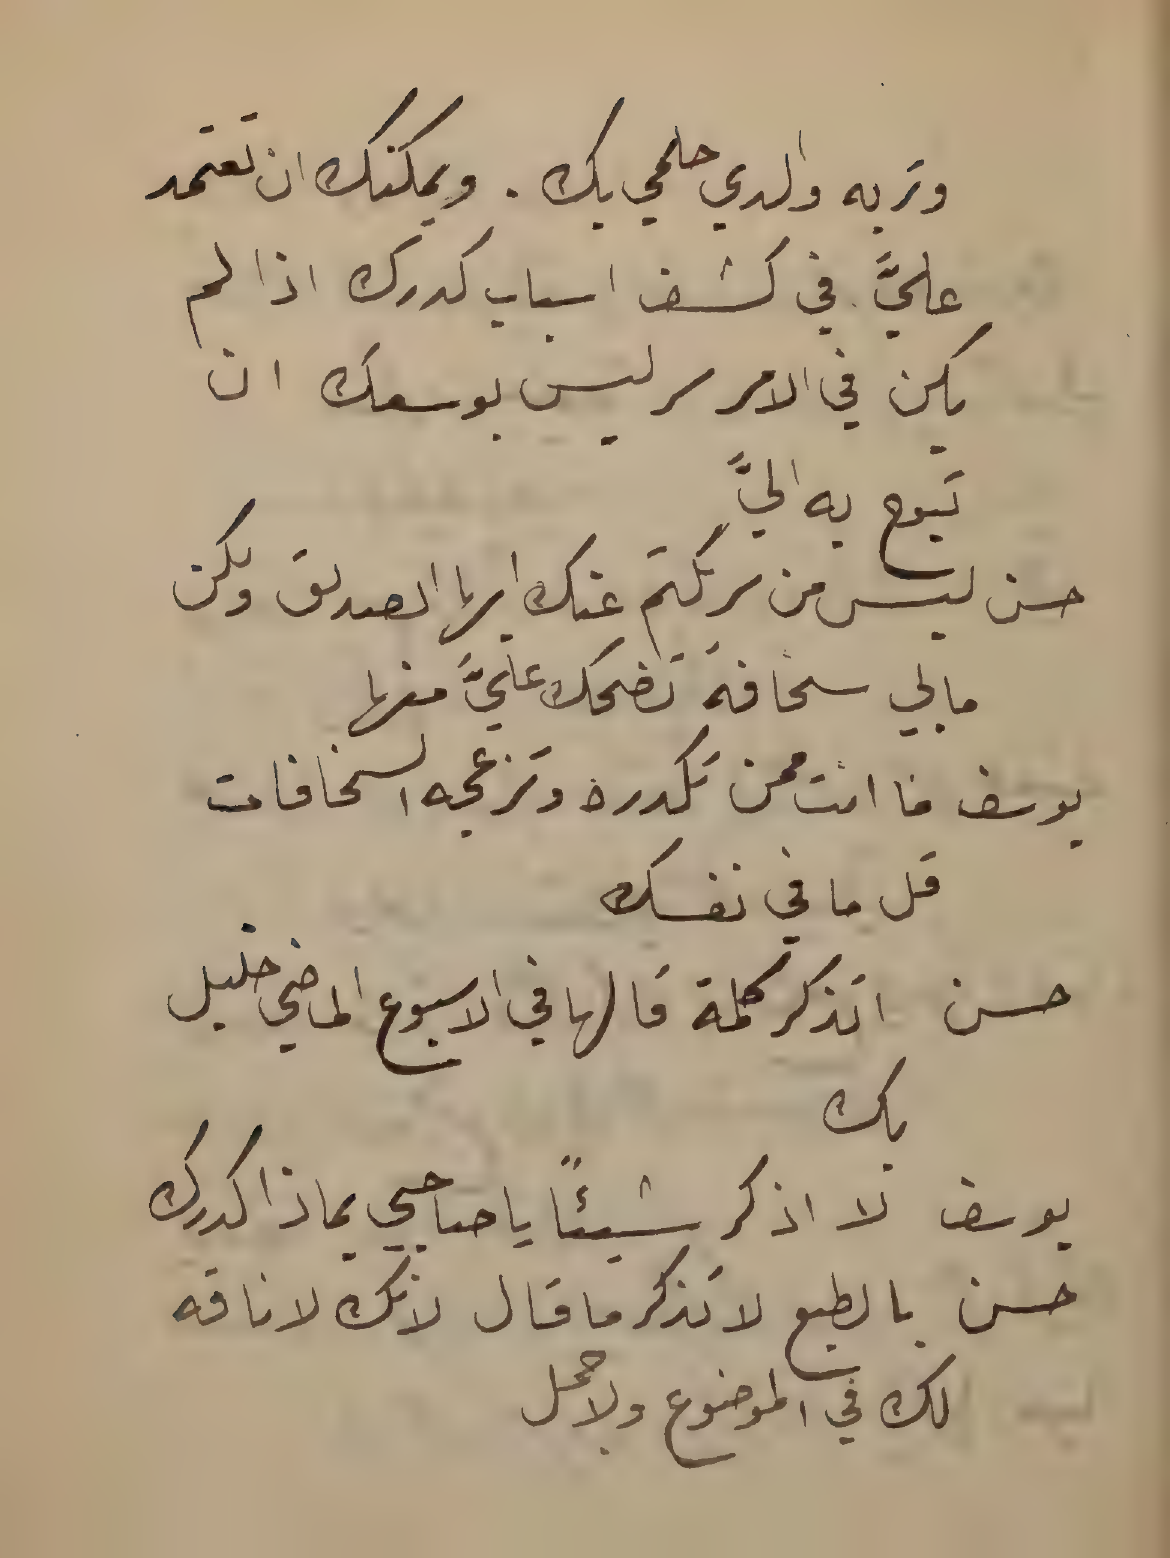 وتربه والدي حلمي بك . ويمكنك ان تعتمد
عليَّ في كشف اسباب كدرك اذا لم
يكن في الامر سر ليس بوسعك ان
تبوح به اليَّ
حسن ليس من سر يكتم عنك ايها الصديق ولكن
مابي سخافة تضحك عليَّ منها
يوسف ما انت ممن تكدره وتزعجه السخافات
قل ما في نفسك
حسن اتذكر كلمة قالها في الاسبوع الماضي خليل
بك
يوسف لا اذكر شيئًا يا صاحبي بماذا كدرك
حسن بالطبع لا تذكر ما قال لانك لا ناقه
لك في الموضوع ولا جمل